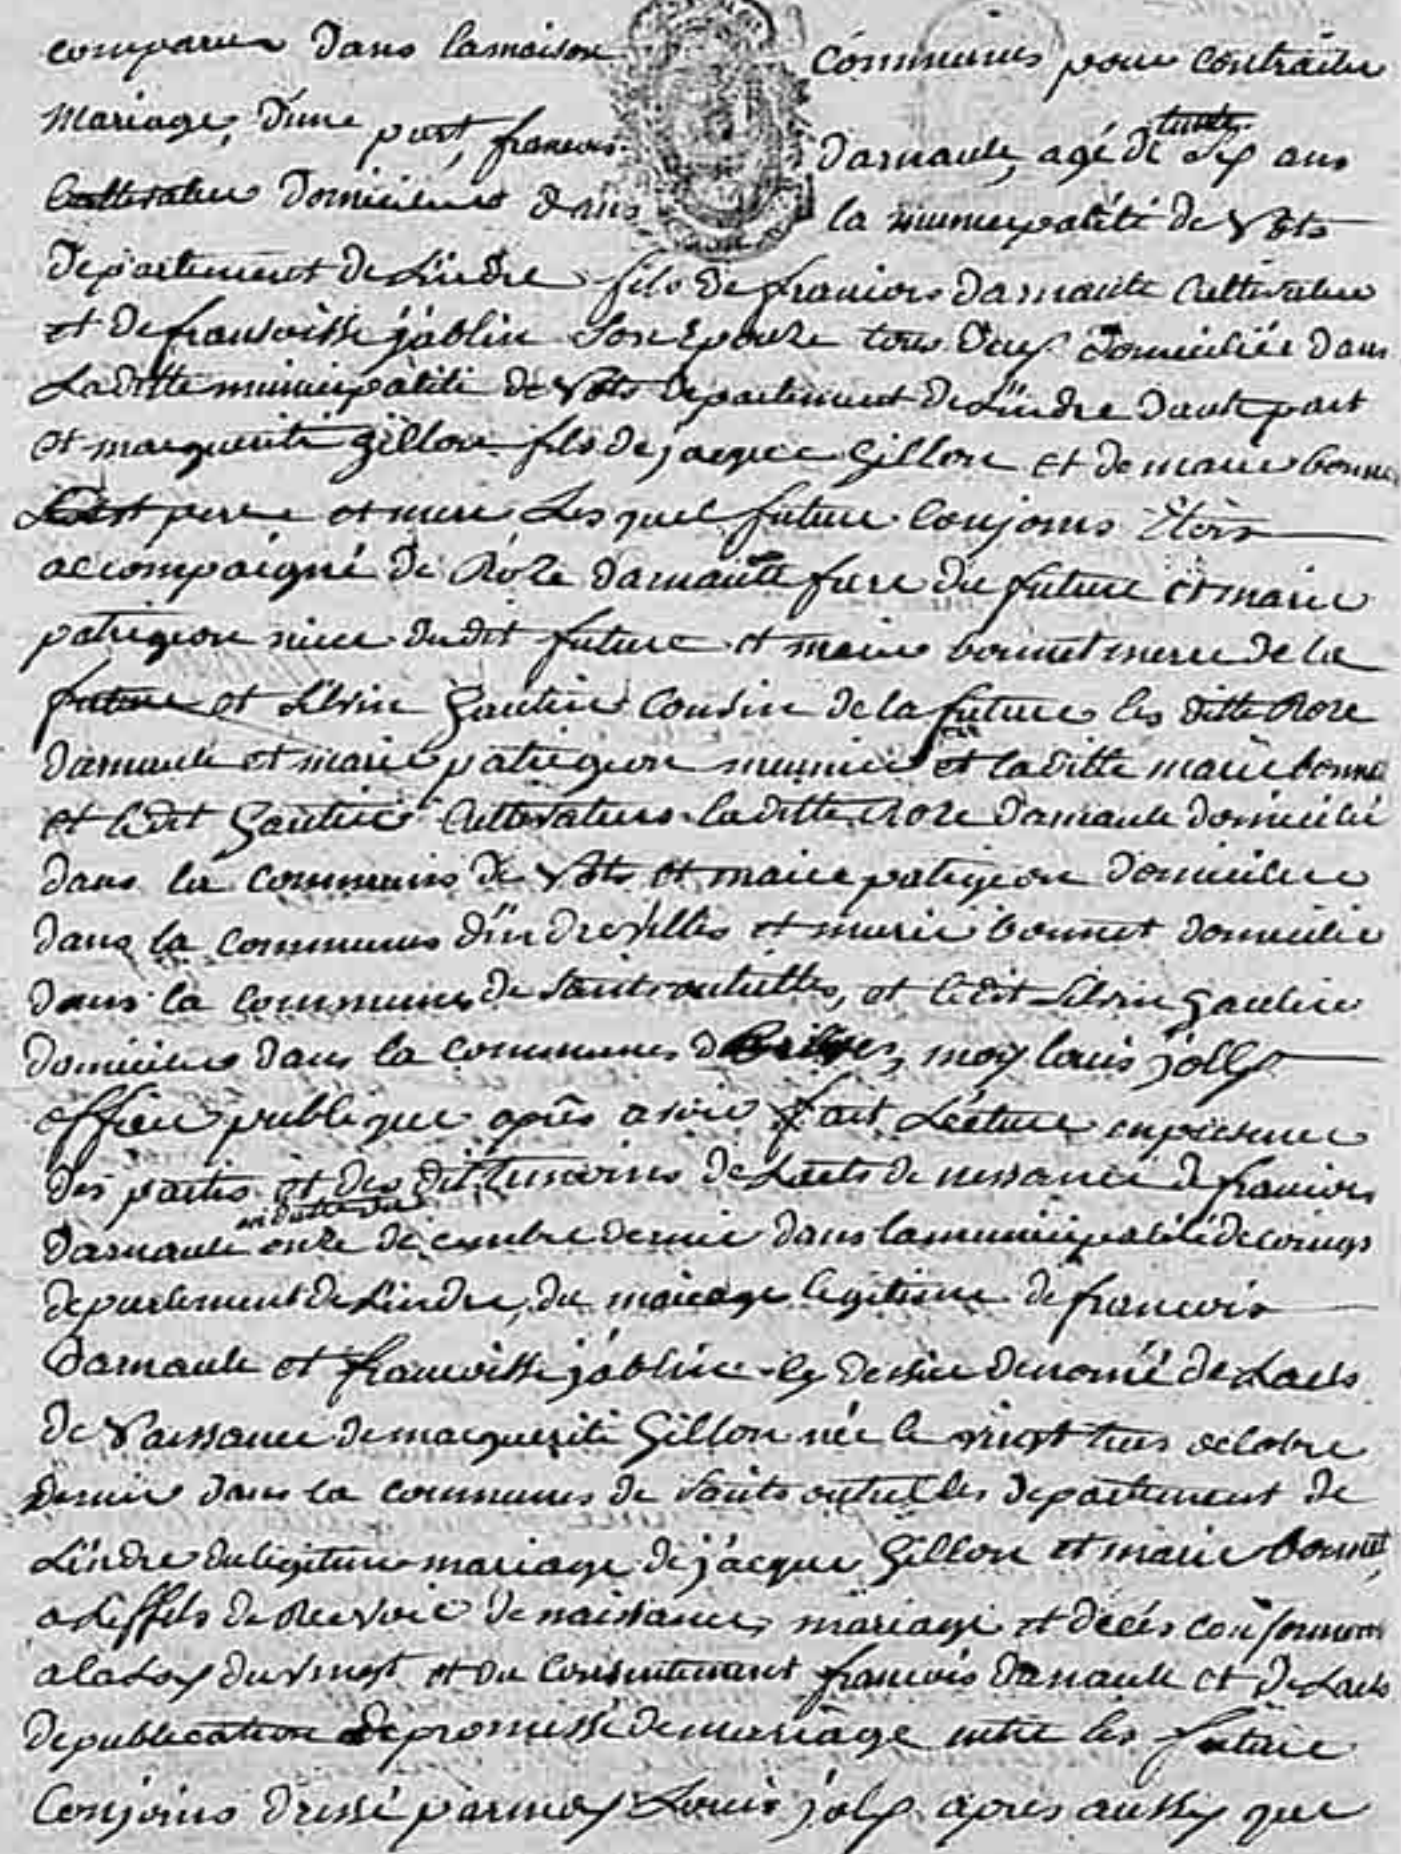 comparu dans lamaison communes pour contraiter
mariage, d'une part, francois darnault, agé de trente six ans
Cultivateur domicilié dans la municipalité de Vots
departement de Lindre fils de franiois darnault Cultivateur
et de fransoisse jáblin son Epouze tous deux domiciliée dans
Laditte municipalité de Vots departement de Lindre dautre part
et marguerite gillon fils de jacque Gillon et de marie bonnet
pere et mere Les quel future Conjoins Etois
accompaigné de Roze darnault fure du future et marie
patrigeon niece du dit future et marie bonnet mere de la
future et Silvin Gautier Cousin de la future les ditte Roze
darnault et marie patrigeon meunier et laditte marie bonnet
et ledit Gautier Cultivateurs laditte Roze darnault domicilié
dans la communes de Vots et marie patrigeon domiciliee
dans la communes d'indrevilles et marie bonnet domicilie
dans la communes de Saintsoutrilles, et ledit Silvin gautier
domicilie dans la communes de moy louis jolly
officie publique apres avoir fait Lecture en presence
des parties et des dit temoins de Lacts de nessance de franiois
darnault onze decembre dernie dans lamunicipalité de coings
departement de Lindre, du mariage legitime de francois
darnault et francoisse jáblin cy dessu denomé de Lacts
de Naissance de marguerite Gillon née le vingt trois octobre
dernie dans la communes de Saints outrilles departement de
Lindre du legitime mariage de jácque Gillon et marie bonnet
a Leffets de Recevoir de naissance, mariage et décés conformement
a la Loy du vingt et du Consentement francois darnault et de Lacts
de publication de promesse de mariage entre les future
Conjoins dressé par moy Louis joly apres aussy que